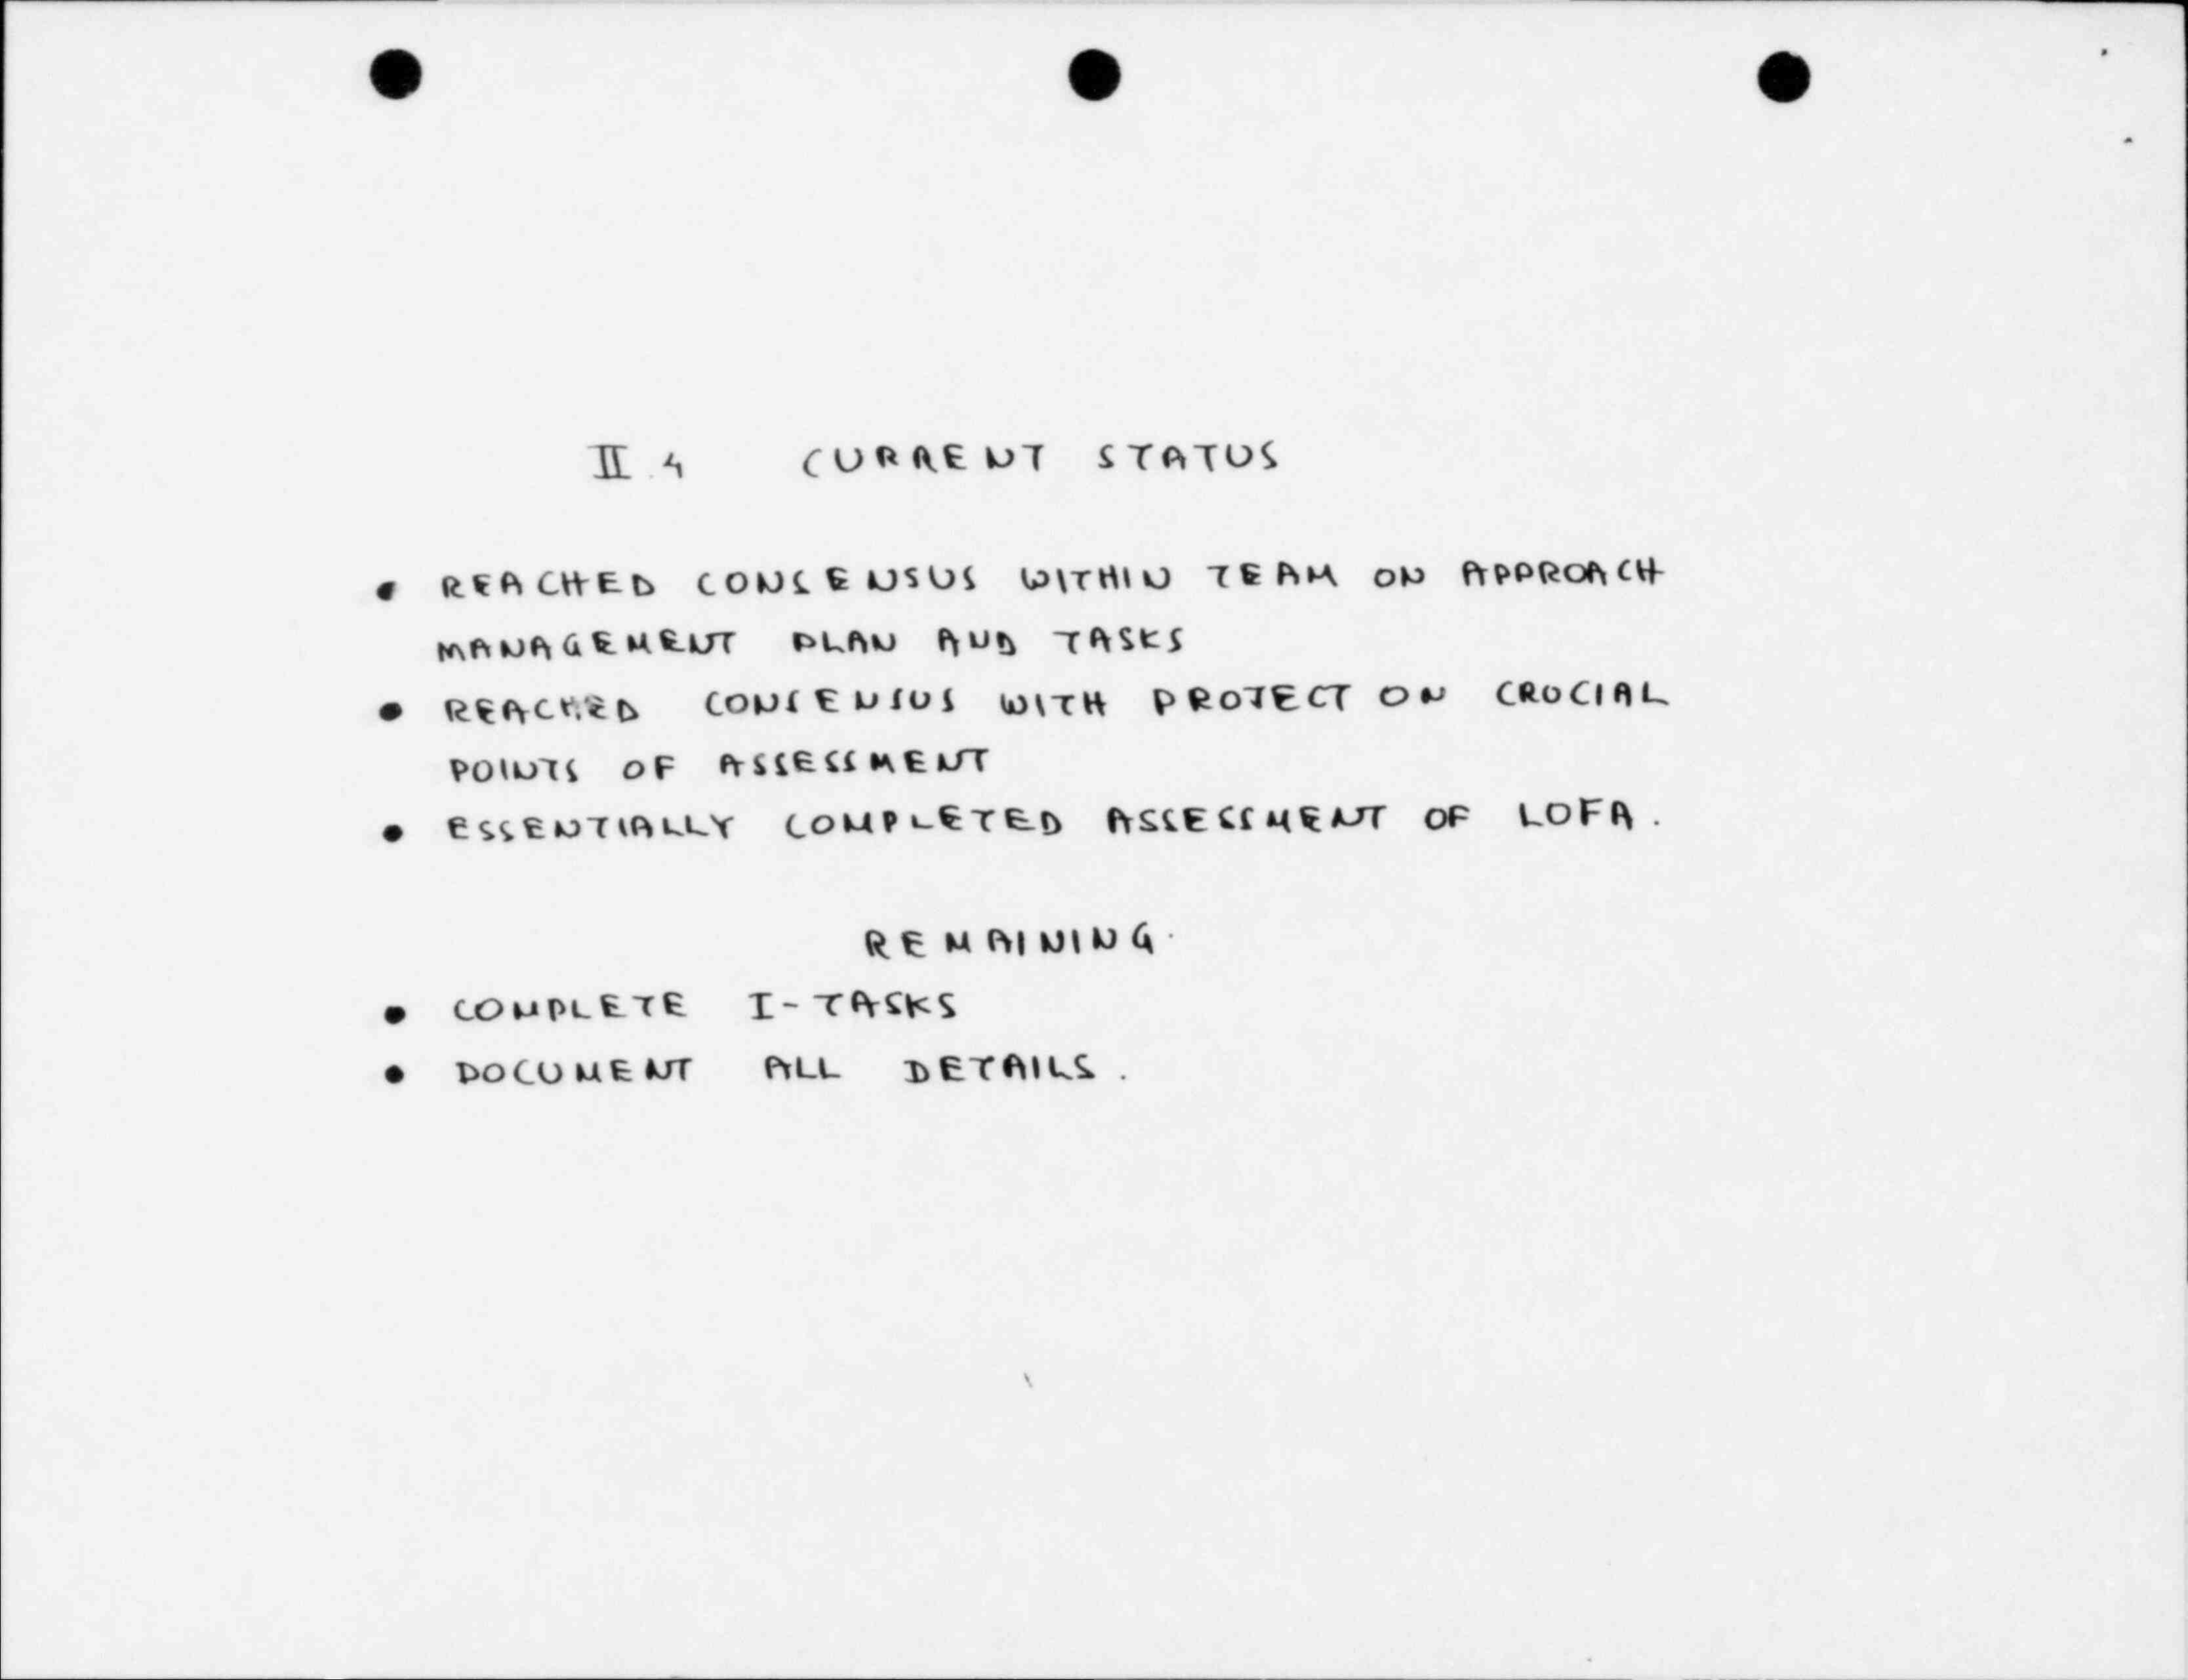 II.4 CURRENT STATUS
• REACHED CONSENSUS WITHIN TEAM ON APPROACH
MANAGEMENT PLAN AND TASKS
• REACHED CONSENSUS WITH PROJECT ON CRUCIAL
POINTS OF ASSESSMENT
• ESSENTIALLY COMPLETED ASSESSMENT OF LOFA.
REMAINING.
• COMPLETE I-TASKS
• DOCUMENT ALL DETAILS.